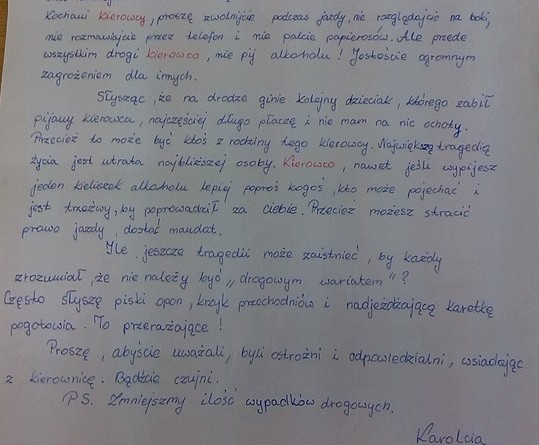 Kochani kierowcy, proszę zwolnijcie podczas jazdy, nie rozglądajcie na boki,
nie rozmawiajcie przez telefon i nie palcie papierosów. Ale przede
wszystkim drogi kierowco, nie pij alkoholu! Jesteście ogromnym
zagrożeniem dla innych.
Słysząc, że na drodze ginie kolejny dzieciak, którego zabił
pijany kierowca, najczęściej długo płaczę i nie mam na nic ochoty.
Przecież to może być ktoś z rodziny tego kierowcy. Największą tragedią
życia jest utrata najbliższej osoby. Kierowco, nawet jeśli wypijesz
jeden kieliszek alkoholu lepiej poproś kogoś, kto może pojechać i
jest trzeźwy, by poprowadził za ciebie. Przecież możesz stracić
prawo jazdy, dostać mandat.
Ile jeszcze tragedii może zaistnieć, by każdy
zrozumiał, że nie należy być „drogowym wariatem"?
Często słyszę piski opon, krzyk przechodniów i nadjeżdżającą karetkę
pogotowia. To przerażające!
Proszę, abyście uważali, byli ostrożni i odpowiedzialni, wsiadając
z kierownicę. Bądźcie czujni.
PS. Zmniejszmy ilość wypadków drogowych.
Karolcia